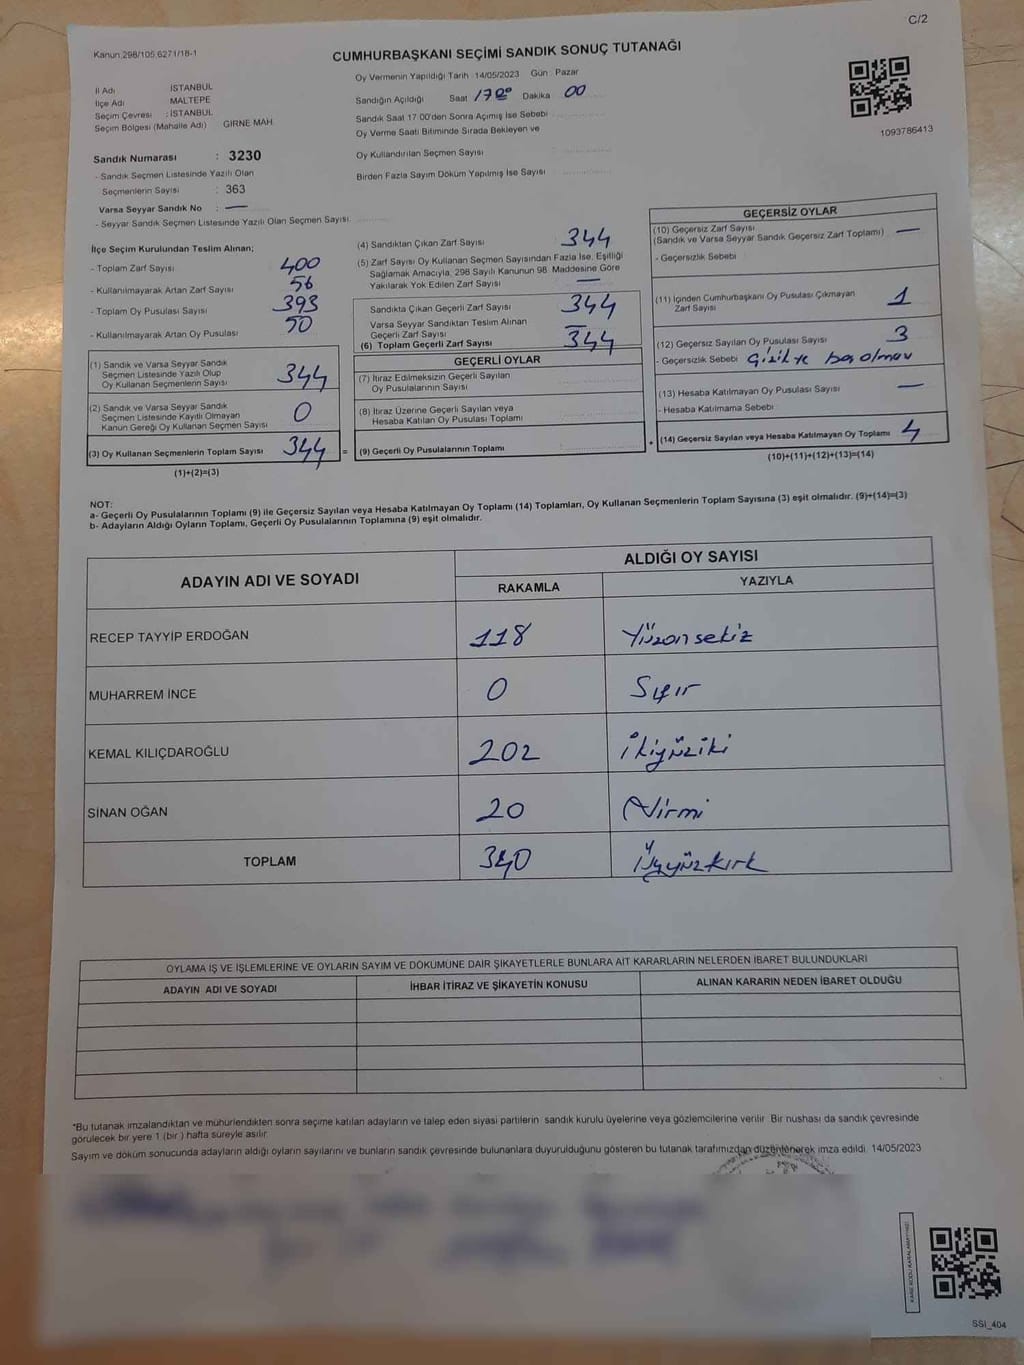 C/2
Kanun 298/105,6271/18-1
CUMHURBAŞKANI SEÇİMİ SANDIK SONUÇ TUTANAĞI
İl Adı : İSTANBUL
İlçe Adı MALTEPE
Seçim Çevresi : İSTANBUL
Seçim Bölgesi (Mahalle Adı) GİRNE MAH.
Oy Vermenin Yapıldığı Tarih : 14/05/2023 Gün : Pazar
Sandığın Açıldığı Saat 17 00 Dakika 00
Sandık Saat 17:00'den Sonra Açılmış İse Sebebi
Oy Verme Saati Bitiminde Sırada Bekleyen ve
Oy Kullandırılan Seçmen Sayısı
Birden Fazla Sayım Döküm Yapılmış İse Sayısı
1093786413
Sandık Numarası : 3230
- Sandık Seçmen Listesinde Yazılı Olan
Seçmenlerin Sayısı : 363
Varsa Seyyar Sandık No : —
- Seyyar Sandık Seçmen Listesinde Yazılı Olan Seçmen Sayısı
İlçe Seçim Kurulundan Teslim Alınan;
- Toplam Zarf Sayısı 400
- Kullanılmayarak Artan Zarf Sayısı 56
- Toplam Oy Pusulası Sayısı 393
- Kullanılmayarak Artan Oy Pusulası 50
(1) Sandık ve Varsa Seyyar Sandık
Seçmen Listesinde Yazılı Olup
Oy Kullanan Seçmenlerin Sayısı 344
(2) Sandık ve Varsa Seyyar Sandık
Seçmen Listesinde Kayıtlı Olmayan
Kanun Gereği Oy Kullanan Seçmen Sayısı 0
(3) Oy Kullanan Seçmenlerin Toplam Sayısı 344 =
(1)+(2)=(3)
(4) Sandıktan Çıkan Zarf Sayısı 344
(5) Zarf Sayısı Oy Kullanan Seçmen Sayısından Fazla İse, Eşitliği
Sağlamak Amacıyla, 298 Sayılı Kanunun 98. Maddesine Göre
Yakılarak Yok Edilen Zarf Sayısı —
Sandıkta Çıkan Geçerli Zarf Sayısı 344
Varsa Seyyar Sandıktan Teslim Alınan
Geçerli Zarf Sayısı —
(6) Toplam Geçerli Zarf Sayısı 344
GEÇERLİ OYLAR
(7) İtiraz Edilmeksizin Geçerli Sayılan
Oy Pusulalarının Sayısı
(8) İtiraz Üzerine Geçerli Sayılan veya
Hesaba Katılan Oy Pusulası Toplamı
(9) Geçerli Oy Pusulalarının Toplamı +
GEÇERSİZ OYLAR
(10) Geçersiz Zarf Sayısı
(Sandık ve Varsa Seyyar Sandık Geçersiz Zarf Toplamı) —
- Geçersizlik Sebebi
(11) İçinden Cumhurbaşkanı Oy Pusulası Çıkmayan
Zarf Sayısı 1
(12) Geçersiz Sayılan Oy Pusulası Sayısı 3
- Geçersizlik Sebebi
(13) Hesaba Katılmayan Oy Pusulası Sayısı —
- Hesaba Katılmama Sebebi
(14) Geçersiz Sayılan veya Hesaba Katılmayan Oy Toplamı 4
(10)+(11)+(12)+(13)=(14)
NOT:
a- Geçerli Oy Pusulalarının Toplamı (9) ile Geçersiz Sayılan veya Hesaba Katılmayan Oy Toplamı (14) Toplamları, Oy Kullanan Seçmenlerin Toplam Sayısına (3) eşit olmalıdır. (9)+(14)=(3)
b- Adayların Aldığı Oyların Toplamı, Geçerli Oy Pusulalarının Toplamına (9) eşit olmalıdır.
ADAYIN ADI VE SOYADI ALDIĞI OY SAYISI
RAKAMLA YAZIYLA
RECEP TAYYİP ERDOĞAN 118 Yüzonsekiz
MUHARREM İNCE 0 Sıfır
KEMAL KILIÇDAROĞLU 202 İkiyüziki
SİNAN OĞAN 20 Yirmi
TOPLAM 340 Üçyüzkırk
OYLAMA İŞ VE İŞLEMLERİNE VE OYLARIN SAYIM VE DÖKÜMÜNE DAİR ŞİKAYETLERLE BUNLARA AİT KARARLARIN NELERDEN İBARET BULUNDUKLARI
ADAYIN ADI VE SOYADI İHBAR İTİRAZ VE ŞİKAYETİN KONUSU ALINAN KARARIN NEDEN İBARET OLDUĞU
*Bu tutanak imzalandıktan ve mühürlendikten sonra seçime katılan adayların ve talep eden siyasi partilerin sandık kurulu üyelerine veya gözlemcilerine verilir. Bir nüshası da sandık çevresinde
görülecek bir yere 1 (bir ) hafta süreyle asılır.
Sayım ve döküm sonucunda adayların aldığı oyların sayılarını ve bunların sandık çevresinde bulunanlara duyurulduğunu gösteren bu tutanak tarafımızdan düzenlenerek imza edildi. 14/05/2023
KARE KODU KARALAMAYINIZ!
SSI_404